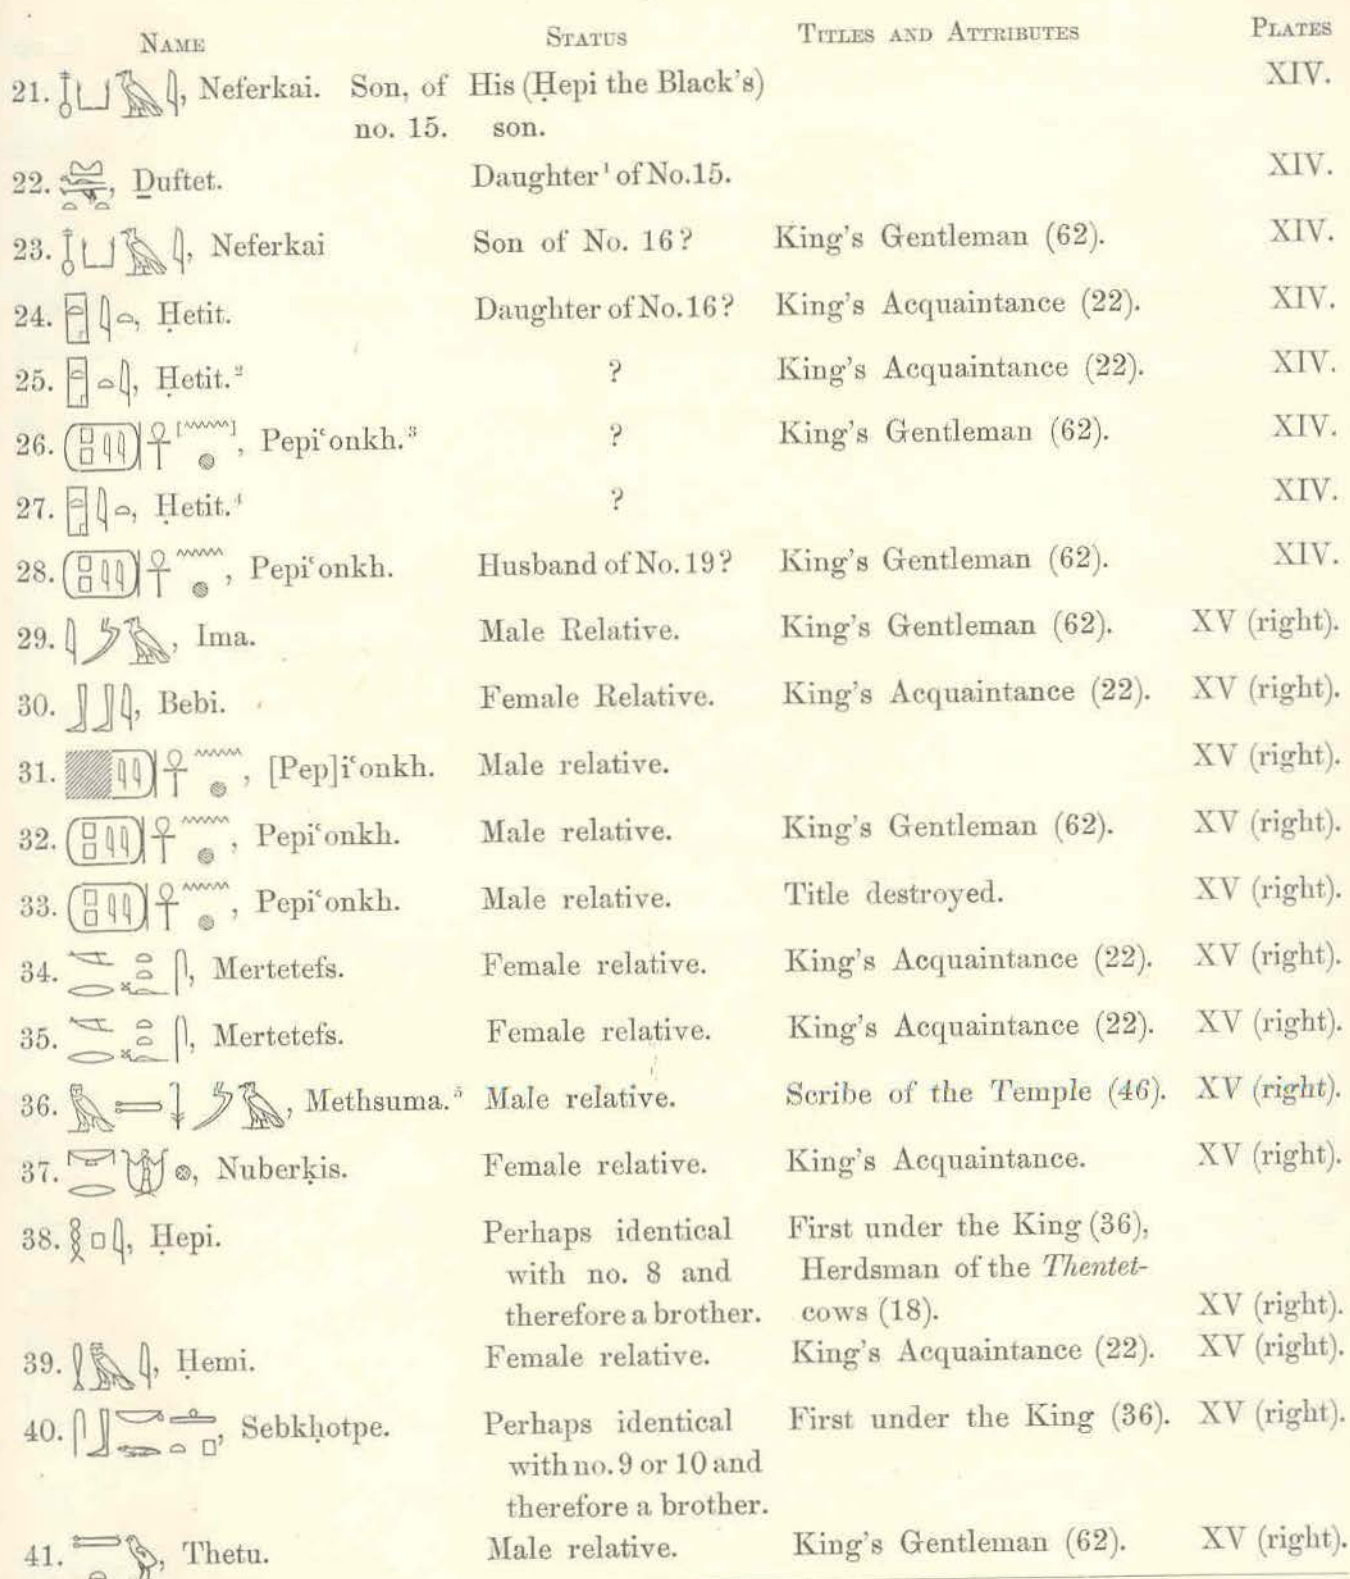 NAME STATUS TITLES AND ATTRIBUTES PLATES
21. 𓄤𓂓𓄿𓇋, Neferkai. Son, of His (Ḥepi the Black's) XIV.
no. 15. son.
22. , Ḏuftet. Daughter¹ of No. 15. XIV.
23. 𓄤𓂓𓄿𓇋, Neferkai Son of No. 16? King's Gentleman (62). XIV.
24. 𓉗𓇋𓏏, Ḥetit. Daughter of No. 16? King's Acquaintance (22). XIV.
25. 𓉗𓏏𓇋, Ḥetit.² ? King's Acquaintance (22). XIV.
26. 𓍹𓊪𓊪𓇋𓇋𓍺𓋹[𓈖]𓐍, Pepiʿonkh.³ ? King's Gentleman (62). XIV.
27. 𓉗𓇋𓏏, Ḥetit.⁴ ? XIV.
28. 𓍹𓊪𓊪𓇋𓇋𓍺𓋹𓈖𓐍, Pepiʿonkh. Husband of No. 19? King's Gentleman (62). XIV.
29. 𓇋𓌳𓄿, Ima. Male Relative. King's Gentleman (62). XV (right).
30. 𓃀𓃀𓇋, Bebi. Female Relative. King's Acquaintance (22). XV (right).
31. 𓇋𓇋𓍺𓋹𓈖𓐍, [Pep]iʿonkh. Male relative. XV (right).
32. 𓍹𓊪𓊪𓇋𓇋𓍺𓋹𓈖𓐍, Pepiʿonkh. Male relative. King's Gentleman (62). XV (right).
33. 𓍹𓊪𓊪𓇋𓇋𓍺𓋹𓈖𓐍, Pepiʿonkh. Male relative. Title destroyed. XV (right).
34. 𓌸𓂋𓏏𓏏𓆑𓋴, Mertetefs. Female relative. King's Acquaintance (22). XV (right).
35. 𓌸𓂋𓏏𓏏𓆑𓋴, Mertetefs. Female relative. King's Acquaintance (22). XV (right).
36. 𓅓𓍿𓇓𓌳𓄿, Methsuma.⁵ Male relative. Scribe of the Temple (46). XV (right).
37. , Nuberḳis. Female relative. King's Acquaintance. XV (right).
38. 𓎛𓊪𓇋, Ḥepi. Perhaps identical First under the King (36),
with no. 8 and Herdsman of the Thentet-
therefore a brother. cows (18). XV (right).
39. 𓍛𓅓𓇋, Ḥemi. Female relative. King's Acquaintance (22). XV (right).
40. 𓋴𓃀𓎡𓆋𓊵𓏏𓊪, Sebkḥotpe. Perhaps identical First under the King (36). XV (right).
with no. 9 or 10 and
therefore a brother.
41. 𓍿𓏏𓅱, Thetu. Male relative. King's Gentleman (62). XV (right).